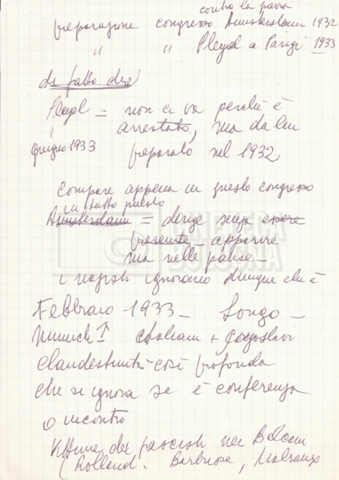 contro la guerra
preparazione congresso Amsterdam 1932
" " Pleyel a Parigi 1933
di fatto due
Pleyel = non ci va perché è
arrestato, ma da lui
giugno 1933 preparato nel 1932
compare appena in questo congresso
in tutto questo
Amsterdam = dirige senza essere
presente apparire
ma nelle pause
i nazisti ignorano dunque chi è
Febbraio 1933 - Longo -
Munich ↑ italiani + jugoslavi
clandestinità così profonda
che si ignora se è conferenza
o incontro
vittime dei fascisti nei Balcani
(Rolland. Barbusse, Malraux